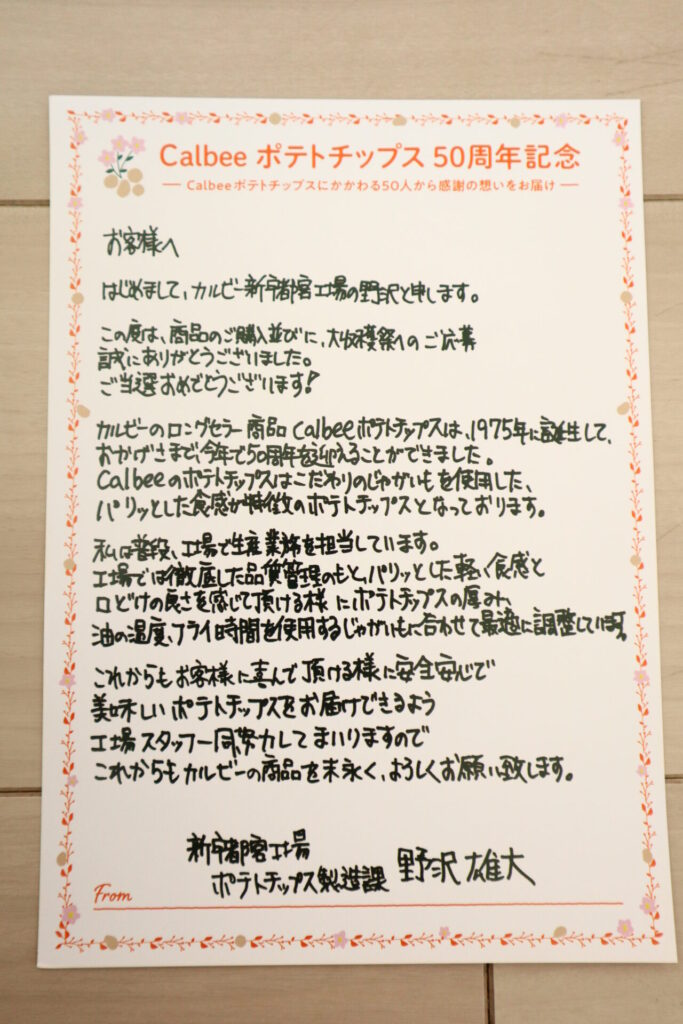 Calbee ポテトチップス 50周年記念
Calbeeポテトチップスにかかわる50人から感謝の想いをお届け
お客様へ
はじめまして、カルビー新宇都宮工場の野沢と申します。
この度は、商品のご購入並びに、大収穫祭へのご応募
誠にありがとうございました。
ご当選おめでとうございます!
カルビーのロングセラー商品Calbeeポテトチップスは、1975年に誕生して、
おかげさまで今年で50周年を迎えることができました。
Calbeeのポテトチップスはこだわりのじゃがいもを使用した、
パリッとした食感が特徴のポテトチップスとなっております。
私は普段、工場で生産業務を担当しています。
工場では徹底した品質管理のもと、パリッとした軽い食感と
口どけの良さを感じて頂ける様にポテトチップスの厚み、
油の温度、フライ時間を使用するじゃがいもに合わせて最適に調整しています。
これからもお客様に喜んで頂ける様に安全安心で
美味しいポテトチップスをお届けできるよう
工場スタッフ一同、努力してまいりますので
これからもカルビーの商品を末永く、よろしくお願い致します。
新宇都宮工場
ポテトチップス製造課 野沢雄大
From